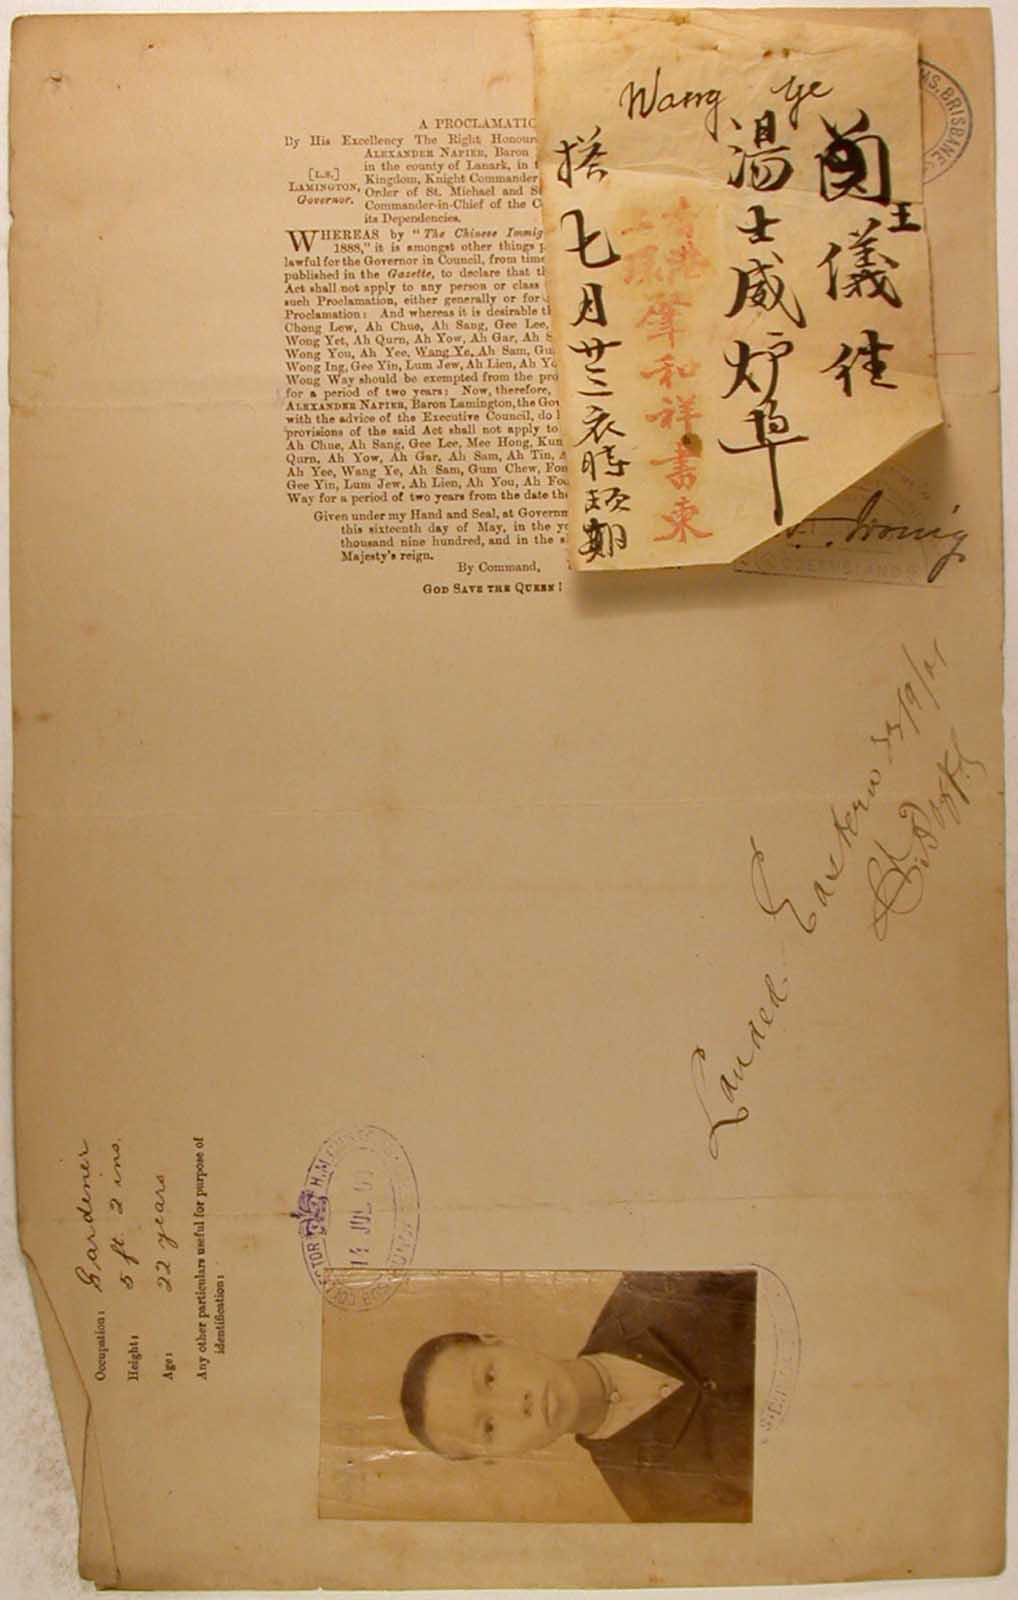 A PROCLAMATIO
By His Excellency The Right Honour
ALEXANDER NAPIER, Baron
in the county of Lanark, in t
[L.S.] Kingdom, Knight Commander
LAMINGTON, Order of St. Michael and S
Governor. Commander-in-Chief of the C
its Dependencies.
WHEREAS by "The Chinese Immig
1888," it is amongst other things p
lawful for the Governor in Council, from time
published in the Gazette, to declare that th
Act shall not apply to any person or class
such Proclamation, either generally or for
Proclamation: And whereas it is desirable th
Chong Lew, Ah Chue, Ah Sang, Gee Lee,
Wong Yet, Ah Qurn, Ah Yow, Ah Gar, Ah S
Wong You, Ah Yee, Wang Ye, Ah Sam, Gu
Wong Ing, Gee Yin, Lum Jew, Ah Lien, Ah Yo
Wong Way should be exempted from the pro
for a period of two years: Now, therefore,
ALEXANDER NAPIER, Baron Lamington, the Gov
with the advice of the Executive Council, do h
provisions of the said Act shall not apply to
Ah Chue, Ah Sang, Gee Lee, Mee Hong, Kun
Qurn, Ah Yow, Ah Gar, Ah Sam, Ah Tin, A
Ah Yee, Wang Ye, Ah Sam, Gum Chew, Fon
Gee Yin, Lum Jew, Ah Lien, Ah You, Ah Fo
Way for a period of two years from the date the
Given under my Hand and Seal, at Governm
this sixteenth day of May, in the ye
thousand nine hundred, and in the s
Majesty's reign.
By Command,
GOD SAVE THE QUEEN!
Wang Ye
王儀往
湯士威炉埠
搭七月廿三衣時
期
香港
上環肇和祥書柬
MS, BRISBANE
QUEENSLAND
Landed Eastern 23/9/01
Occupation: Gardener
Height: 5 ft. 2 ins.
Age: 22 years
Any other particulars useful for purpose of
identification:
COLLECTOR H.M. CUSTOMS
14 JUL